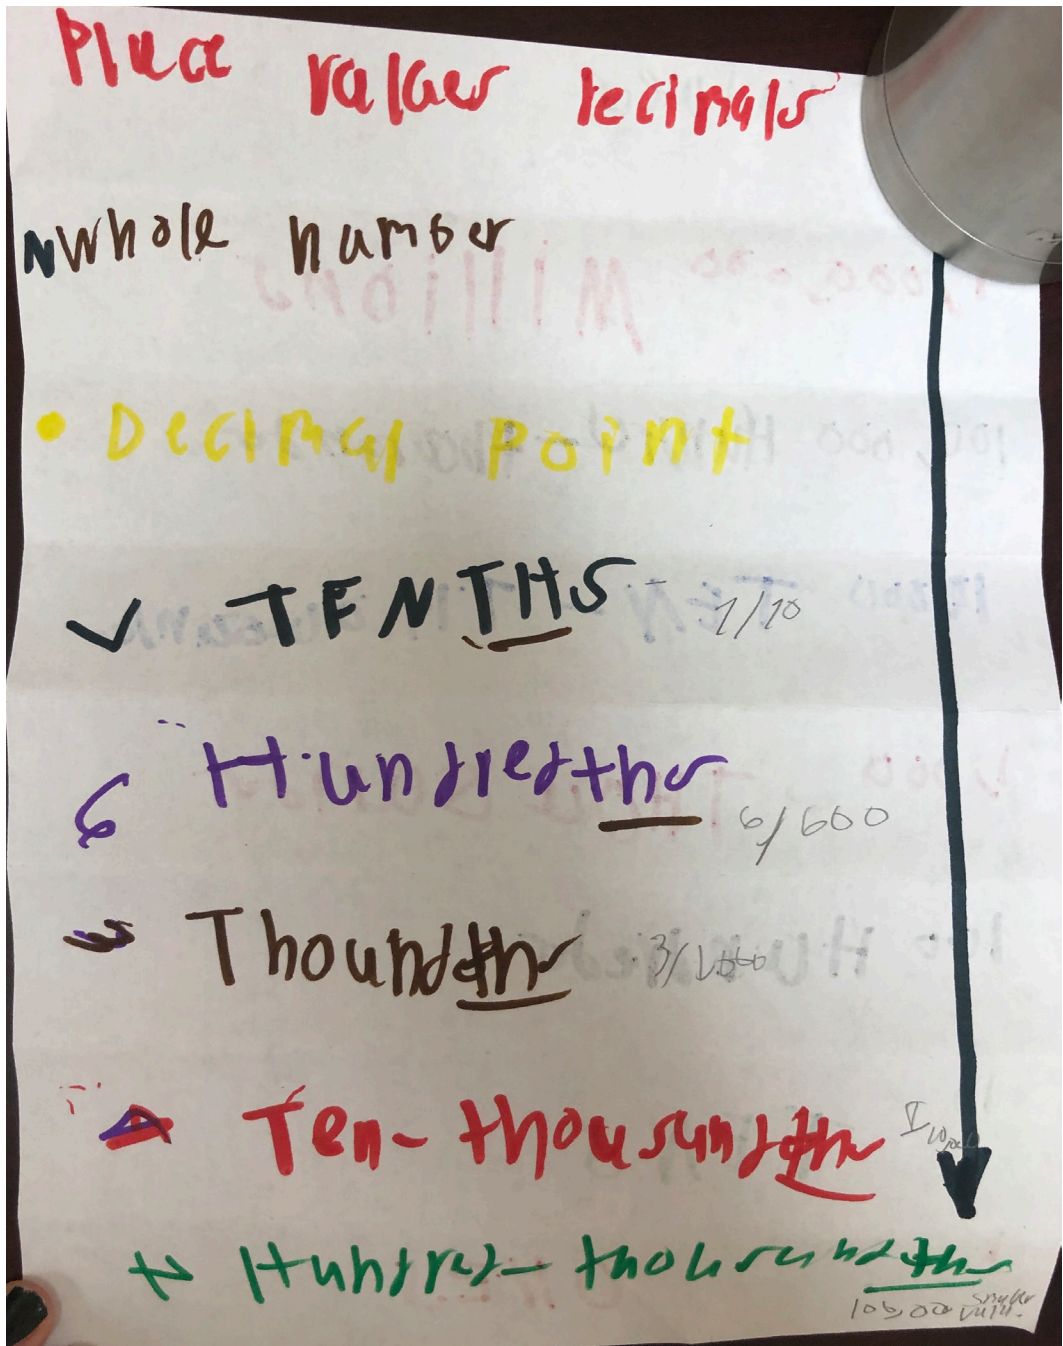 Place values decimals
N Whole number
• Decimal point
✓ TENTHS 1/10
6 Hundredths 6/600
Thoundths 3/1000
Ten-thousandths
Hundred-thousandths
100,000 smaller